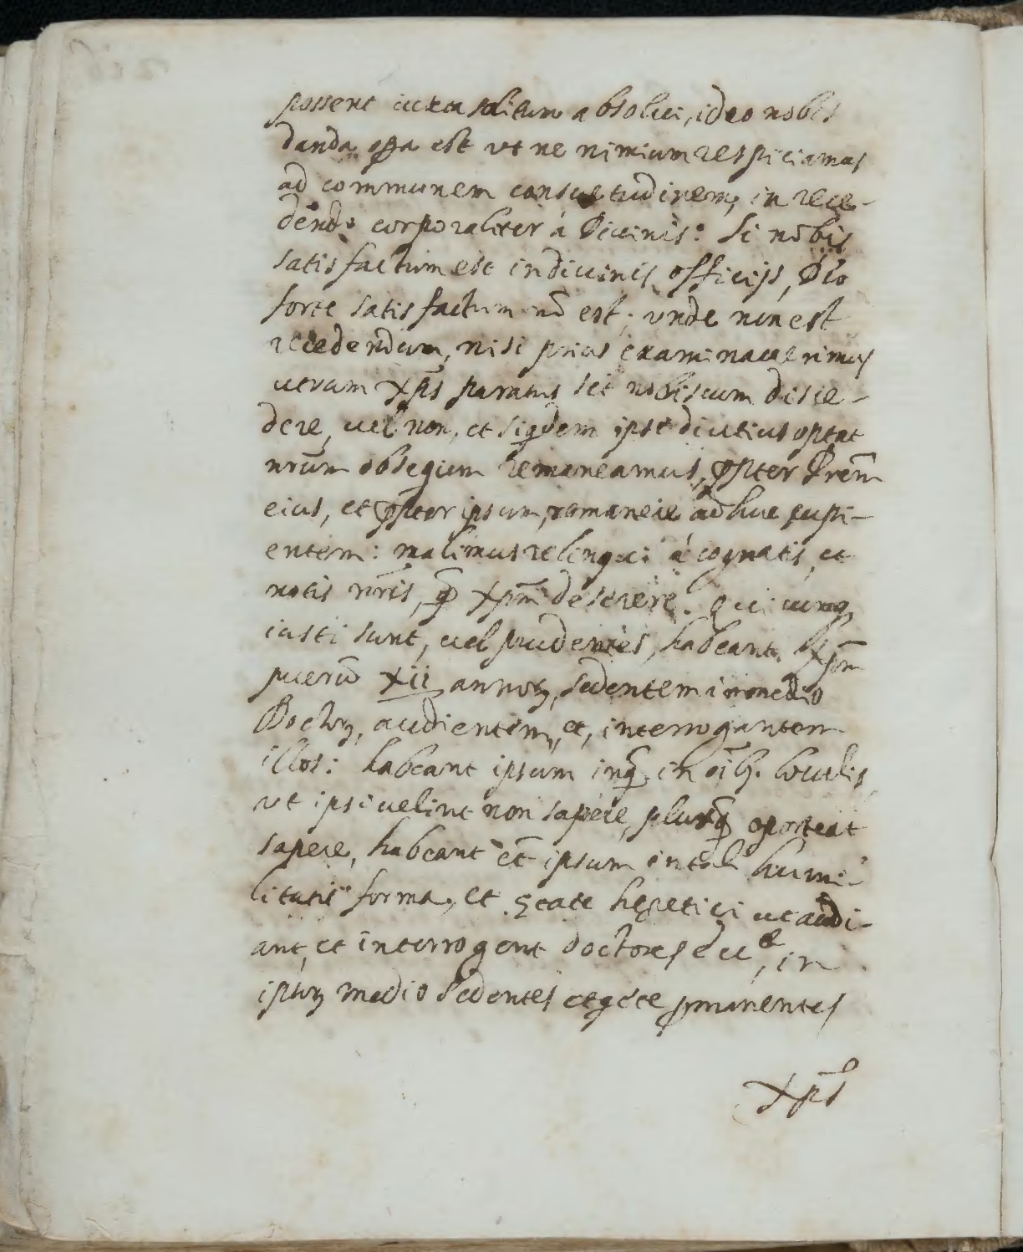 possent iuxta solitum absolui, ideo nobis
danda opa est vt ne nimium respiciamus
ad communem consuetudinem, in rece-
dendo corporaliter à Diuinis: Si nobis
satisfactum est in diuinis officijs, Deo
forte satisfactum nō est; vnde non est
recedendum, nisi prius examinauerimus
utrum Xp̄s paratus sit nobiscum disce-
dere, uel non, et siqdem ipse diutius optat
nr̄um obsequium remaneamus, ꝓpter Pr̄em
eius, et ꝓpter ipsum, remanere adhuc cupi-
entem: malimus relinqui à cognatis, et
notis nr̄is, q̄ Xp̄m deserere. Quicunq
iusti sunt, uel prudentes, habeant Xp̄m
puerū XII annoꝝ, sedentem in medio
Doctoꝝ, audientem, et, interrogantem
illos: habeant ipsum inq̄, in oīb.
vt ipsi uelint non sapere, plusq̄ oporteat
sapere, habeant et̄ ipsum in tali humi-
litatis forma, et ętate hęretici ut audi-
ant, et interrogent doctores in
ipsoꝝ medio sedentes ꝑmanentes
Xp̄s